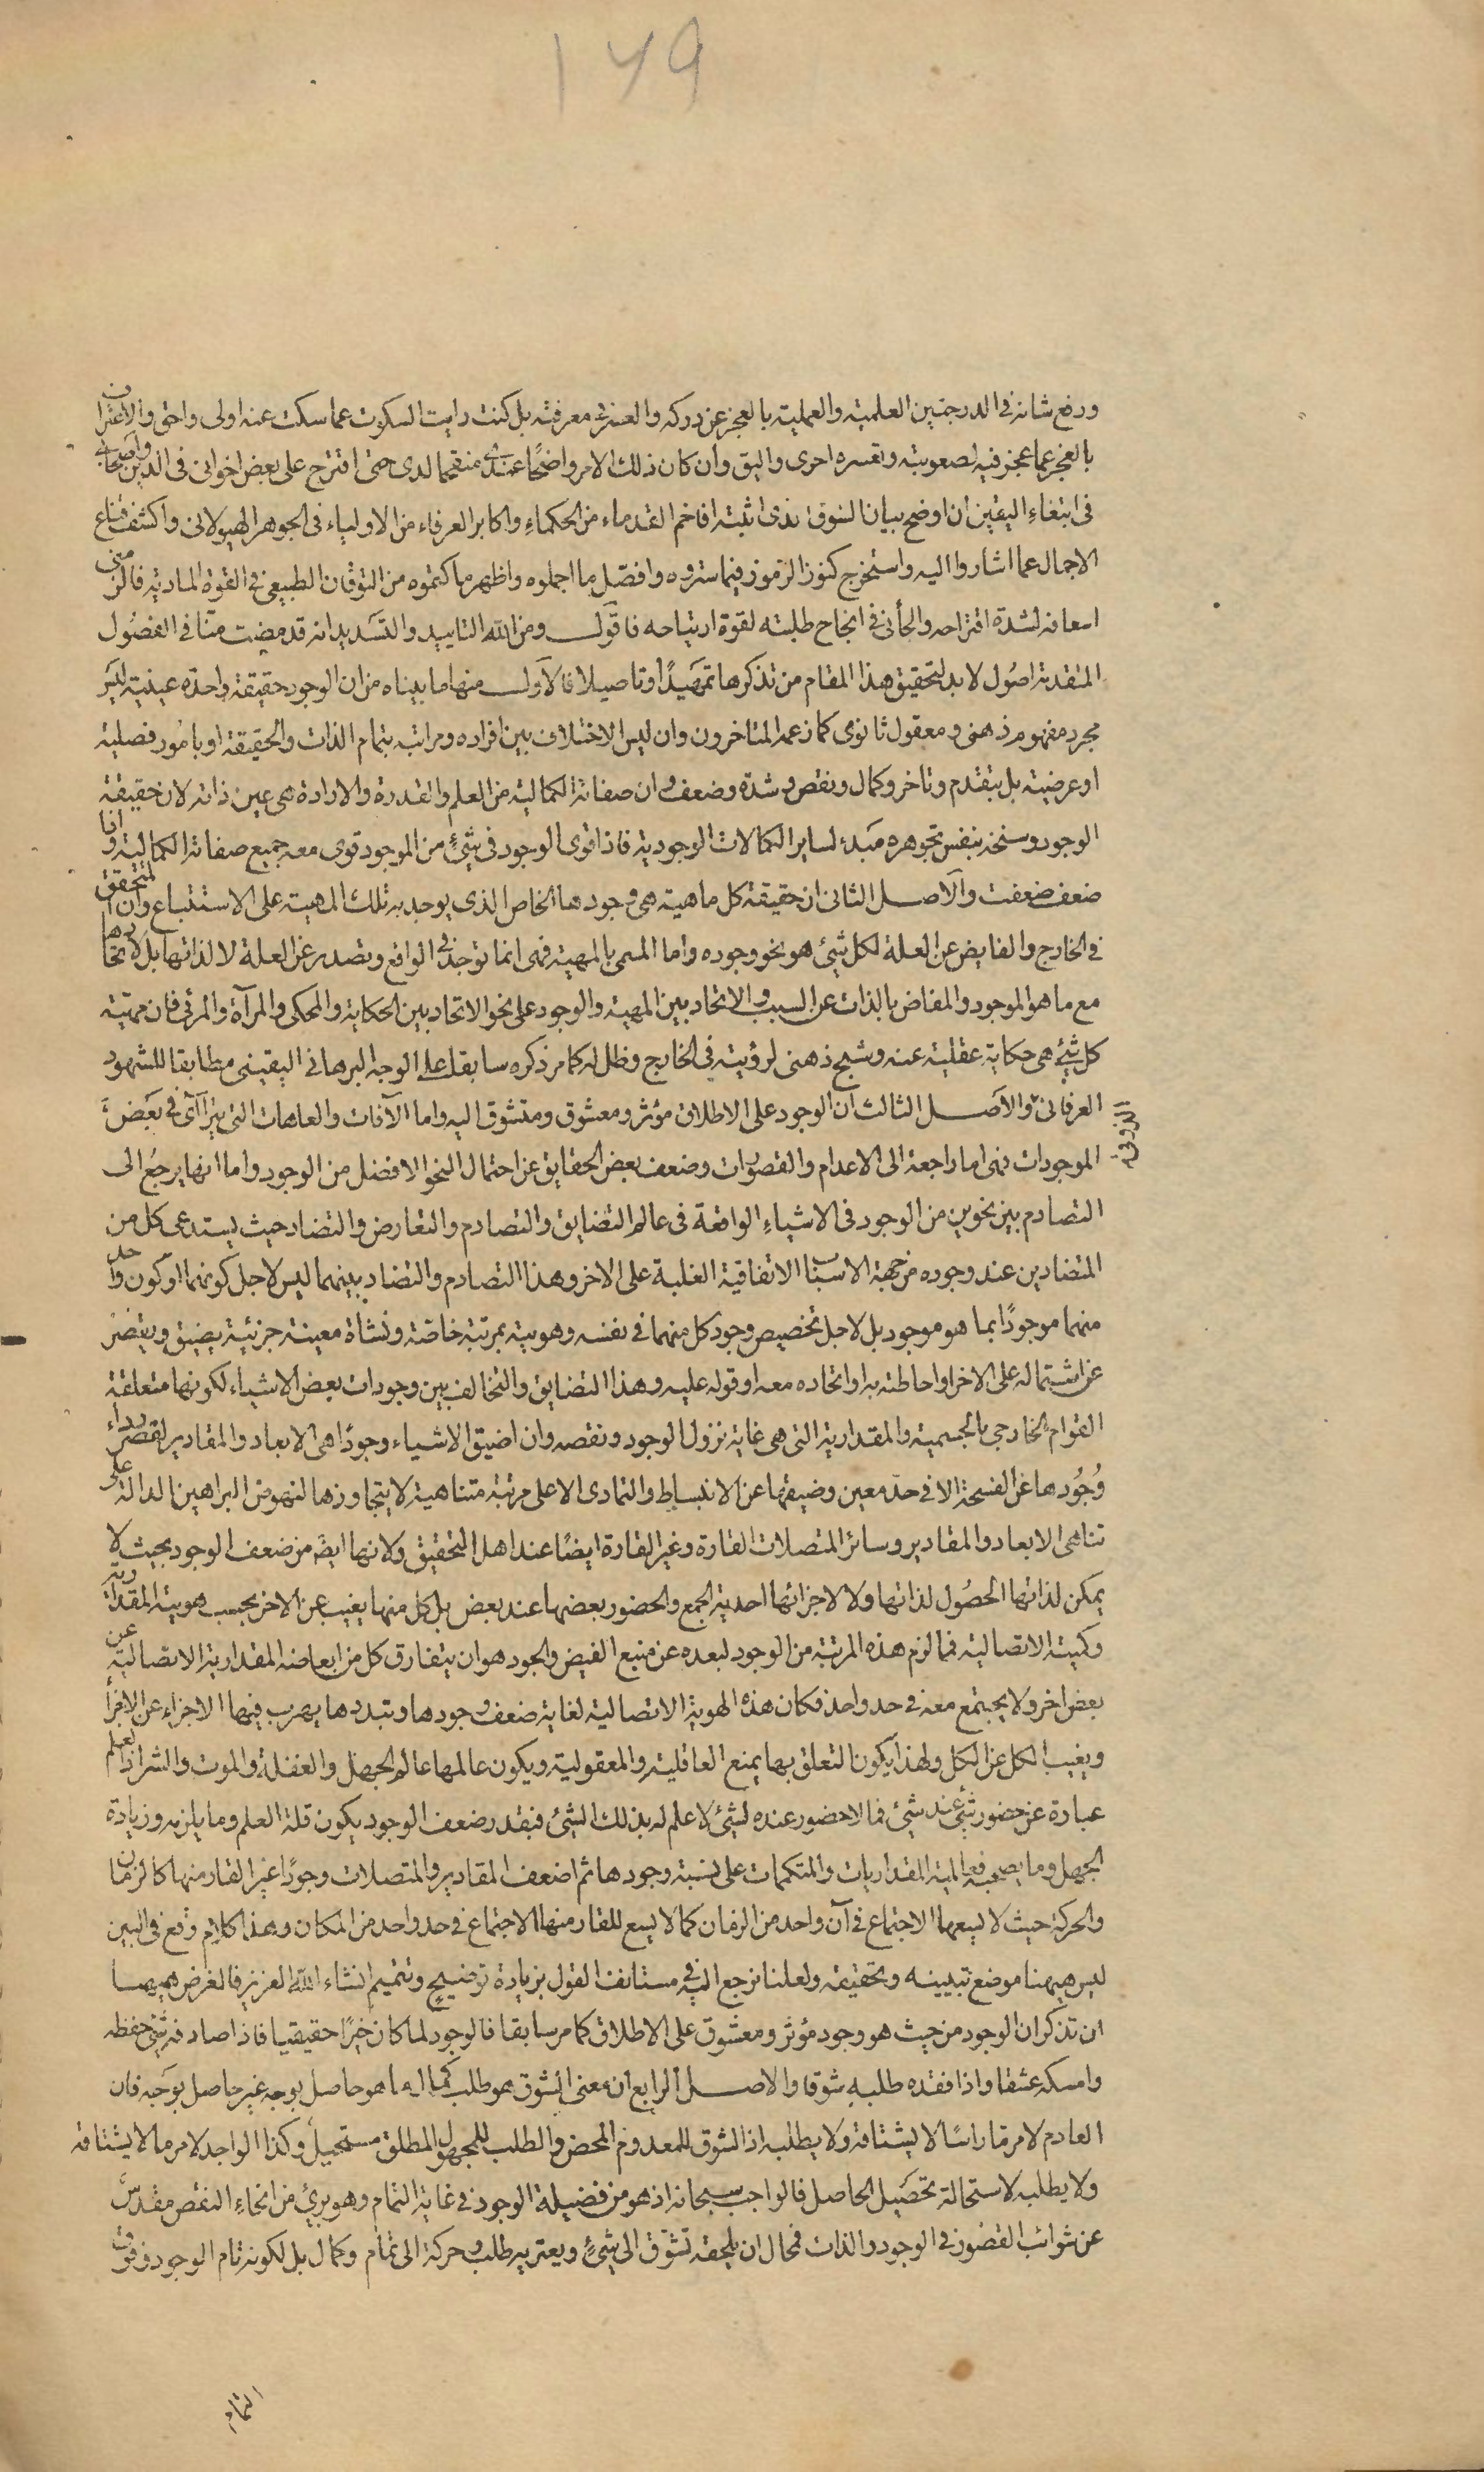 ١٧٩
ورفع شانه فى الدرجتين العلمية والعملية بالعجز عن دركه والعسر فى معرفته بل كنت رايت السكوت عما سكت عنه اولى واحق والاعتراف
بالعجز عما عجز فيه لصعوبته وتعسره احرى واليق وان كان ذلك الامر واضحًا عندى منقحا لدى حتى اقترح على بعض اخوانى فى الدين واصحابى
فى ابتغاءِ اليقين ان اوضح بيان الشوق الذى اثبته افاخم القدماء من الحكماءِ واكابر العرفاء من الاولياء فى الجوهر الهيولانى واكشف قناع
الاجمال عما اشاروا اليه واستخرج كنوز الرموز فيما ستروه وافصّل ما اجملوه واظهر ما كتموه من التوقان الطبيعى فى القوة المادية فالزمنى
اسعافه لشدة اقتراحه والجأنى فى انجاح طلبته لقوة ارتياحه فاقول ومن الله التاييد والتسديد انه قد مضت منّا فى الفصُول
المتقدمة اصُول لا بد لتحقيق هذا المقام من تذكرها تمهيدًا وتاصيلا فالاول منها ما بيناه من ان الوجود حقيقة واحدة عينية ليس
مجرد مفهوم ذهنى ومعقول ثانوى كما زعمه المتاخرون وان ليس الاختلاف بين افراده ومراتبه بتمام الذات والحقيقة او بامُور فصلية
او عرضية بل بتقدم وتاخر وكمال ونقص وشدة وضعف وان صفاته الكمالية من العلم والقدرة والارادة هى عين ذاته لان حقيقة
الوجود وسنخه بنفس تجوهره مبدء لساير الكمالات الوجودية فاذا قوى الوجود فى شئٍ من الموجود قوى معه جميع صفاته الكمالية واذا
ضعف ضعفت والاصل الثانى ان حقيقة كل ماهية هى وجودها الخاص الذى يوجد به تلك المهية على الاستتباع وان المتحقق
فى الخارج والفايض عن العلة لكل شئ هو نحو وجوده واما المسمى بالمهية فهى انما توجد فى الواقع وتصدر عن العلة لا لذاتها بل لاتحادها
مع ما هو الموجود والمفاض بالذات عن السبب والاتحاد بين المهية والوجود على نحو الاتحاد بين الحكاية والمحكى والمرآة والمرئى فان مهية
كل شئ هى حكاية عقلية عنه وشبح ذهنى لرؤيته فى الخارج وظل له كما مر ذكره سابقا على الوجه البرهانى اليقينى مطابقا للشهود
العرفانى والاصل الثالث ان الوجود على الاطلاق مؤثر ومعشوق ومتشوق اليه واما الآفات والعاهات التى يترآأى فى بعض
الموجودات فهى اما راجعة الى الاعدام والقصورات وضعف بعض الحقايق عن احتمال النحو الافضل من الوجود واما انها يرجعُ الى
التصادم بين نحوين من الوجود فى الاشياءِ الواقعة فى عالم التضايق والتصادم والتعارض والتضاد حيث يستدعى كل من
المتضادين عند وجوده من جهة الاسباب الاتفاقية الغلبة على الاخر وهذا التصادم والتضاد بينهما ليس لاجل كونهما او كون واحد
منهما موجودًا بما هو موجود بل لاجل تخصيص وجود كل منهما فى نفسه وهويته بمرتبة خاصّة ونشأة معينة جزئية يضيق ويقصر
عن اشتماله على الاخر او احاطته به او اتحاده معه او قوله عليه وهذا التضايق والتخالف بين وجودات بعض الاشياء لكونها متعلقة
القوام الخارجى بالجسمية والمقدارية التى هى غاية نزول الوجود ونقصه وان اضيق الاشياء وجودًا هى الابعاد والمقادير لقصر رداء
وُجُودها عن الفسحة الا فى حدّ معين وضيقها عن الانبساط والتمادى الا على مرتبة متناهية لا يتجاوزها لنهوض البراهين الدالة على
تناهى الابعاد والمقادير وسائر المتصلات القارة وغير القارة ايضًا عند اهل التحقيق ولانها ايضً من ضعف الوجود بحيث لا
يمكن لذاتها الحصُول لذاتها ولا لاجزائها احدية الجمع والحضور بعضها عند بعض بل كل منها يغيب عن الاخر بحسب هويته المقدارية
وكميته الاتصالية فما لزم هذه المرتبة من الوجود لبعده عن منبع الفيض والجود هو ان يتفارق كل من ابعاضه المقدارية الاتصالية عن
بعض اخر ولا يجتمع معه فى حد واحد فكان هذه الهوية الاتصالية لغاية ضعف وجودها وتبددها يهرب فيها الاجزاء عن الاجزأ
ويغيب الكل عن الكل ولهذا يكون التعلق بها يمنع العاقلية والمعقولية ويكون عالمها عالم الجهل والغفلة والموت والشر اذ العلم
عبارة عن حضور شئ عند شئ فما لا حضور عنده لشئ لا علم له بذلك الشئ فبقدر ضعف الوجود يكون قلة العلم وما يلزمه وزيادة
الجهل وما يصحبه فعالمية المقداريات والمتكممات على نسبة وجودها ثم اضعف المقادير والمتصلات وجودًا غير القار منها كالزمان
والحركة حيث لا يسعها الاجتماع فى آن واحد من الزمان كما لا يسع للقار منها الاجتماع فى حد واحد من المكان وهذا كلام وقع فى البين
ليس هيهنا موضع تبيينه وتحقيقه ولعلنا نرجع اليه فى مستانف القول بزيادة توضيح وتتميم انشاء الله العزيز فالغرض هيهنا
ان تذكر ان الوجود من حيث هو وجود مؤثر ومعشوق على الاطلاق كما مر سابقا فالوجود لما كان خيرًا حقيقيا فاذا صادفه شئ حفظه
وامسكه عشقا واذا فقده طلبه شوقا والاصل الرابع ان معنى الشوق هو طلب كمال ما هو حاصل بوجه غير حاصل بوجه فان
العادم لامر ما راسًا لا يشتاقه ولا يطلبه اذ الشوق للمعدوم المحض والطلب للمجهول المطلق مستحيل وكذا الواجد لامر ما لا يشتاقه
ولا يطلبه لاستحالة تحصيل الحاصل فالواجب سبحانه اذ هو من فضيلة الوجود فى غاية التمام وهو برئ من انحاءِ النقص مقدس
عن شوائب القصُور فى الوجود والذات فمحال ان يلحقه تشوّق الى شئٍ ويعتريه طلب وحركة الى تمام وكمال بل لكونه تام الوجود وفوق
التمام